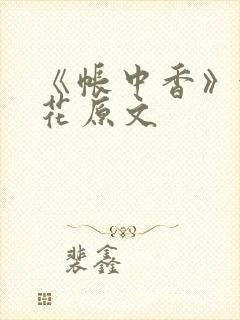 《帐中香》
花原文
裴鑫